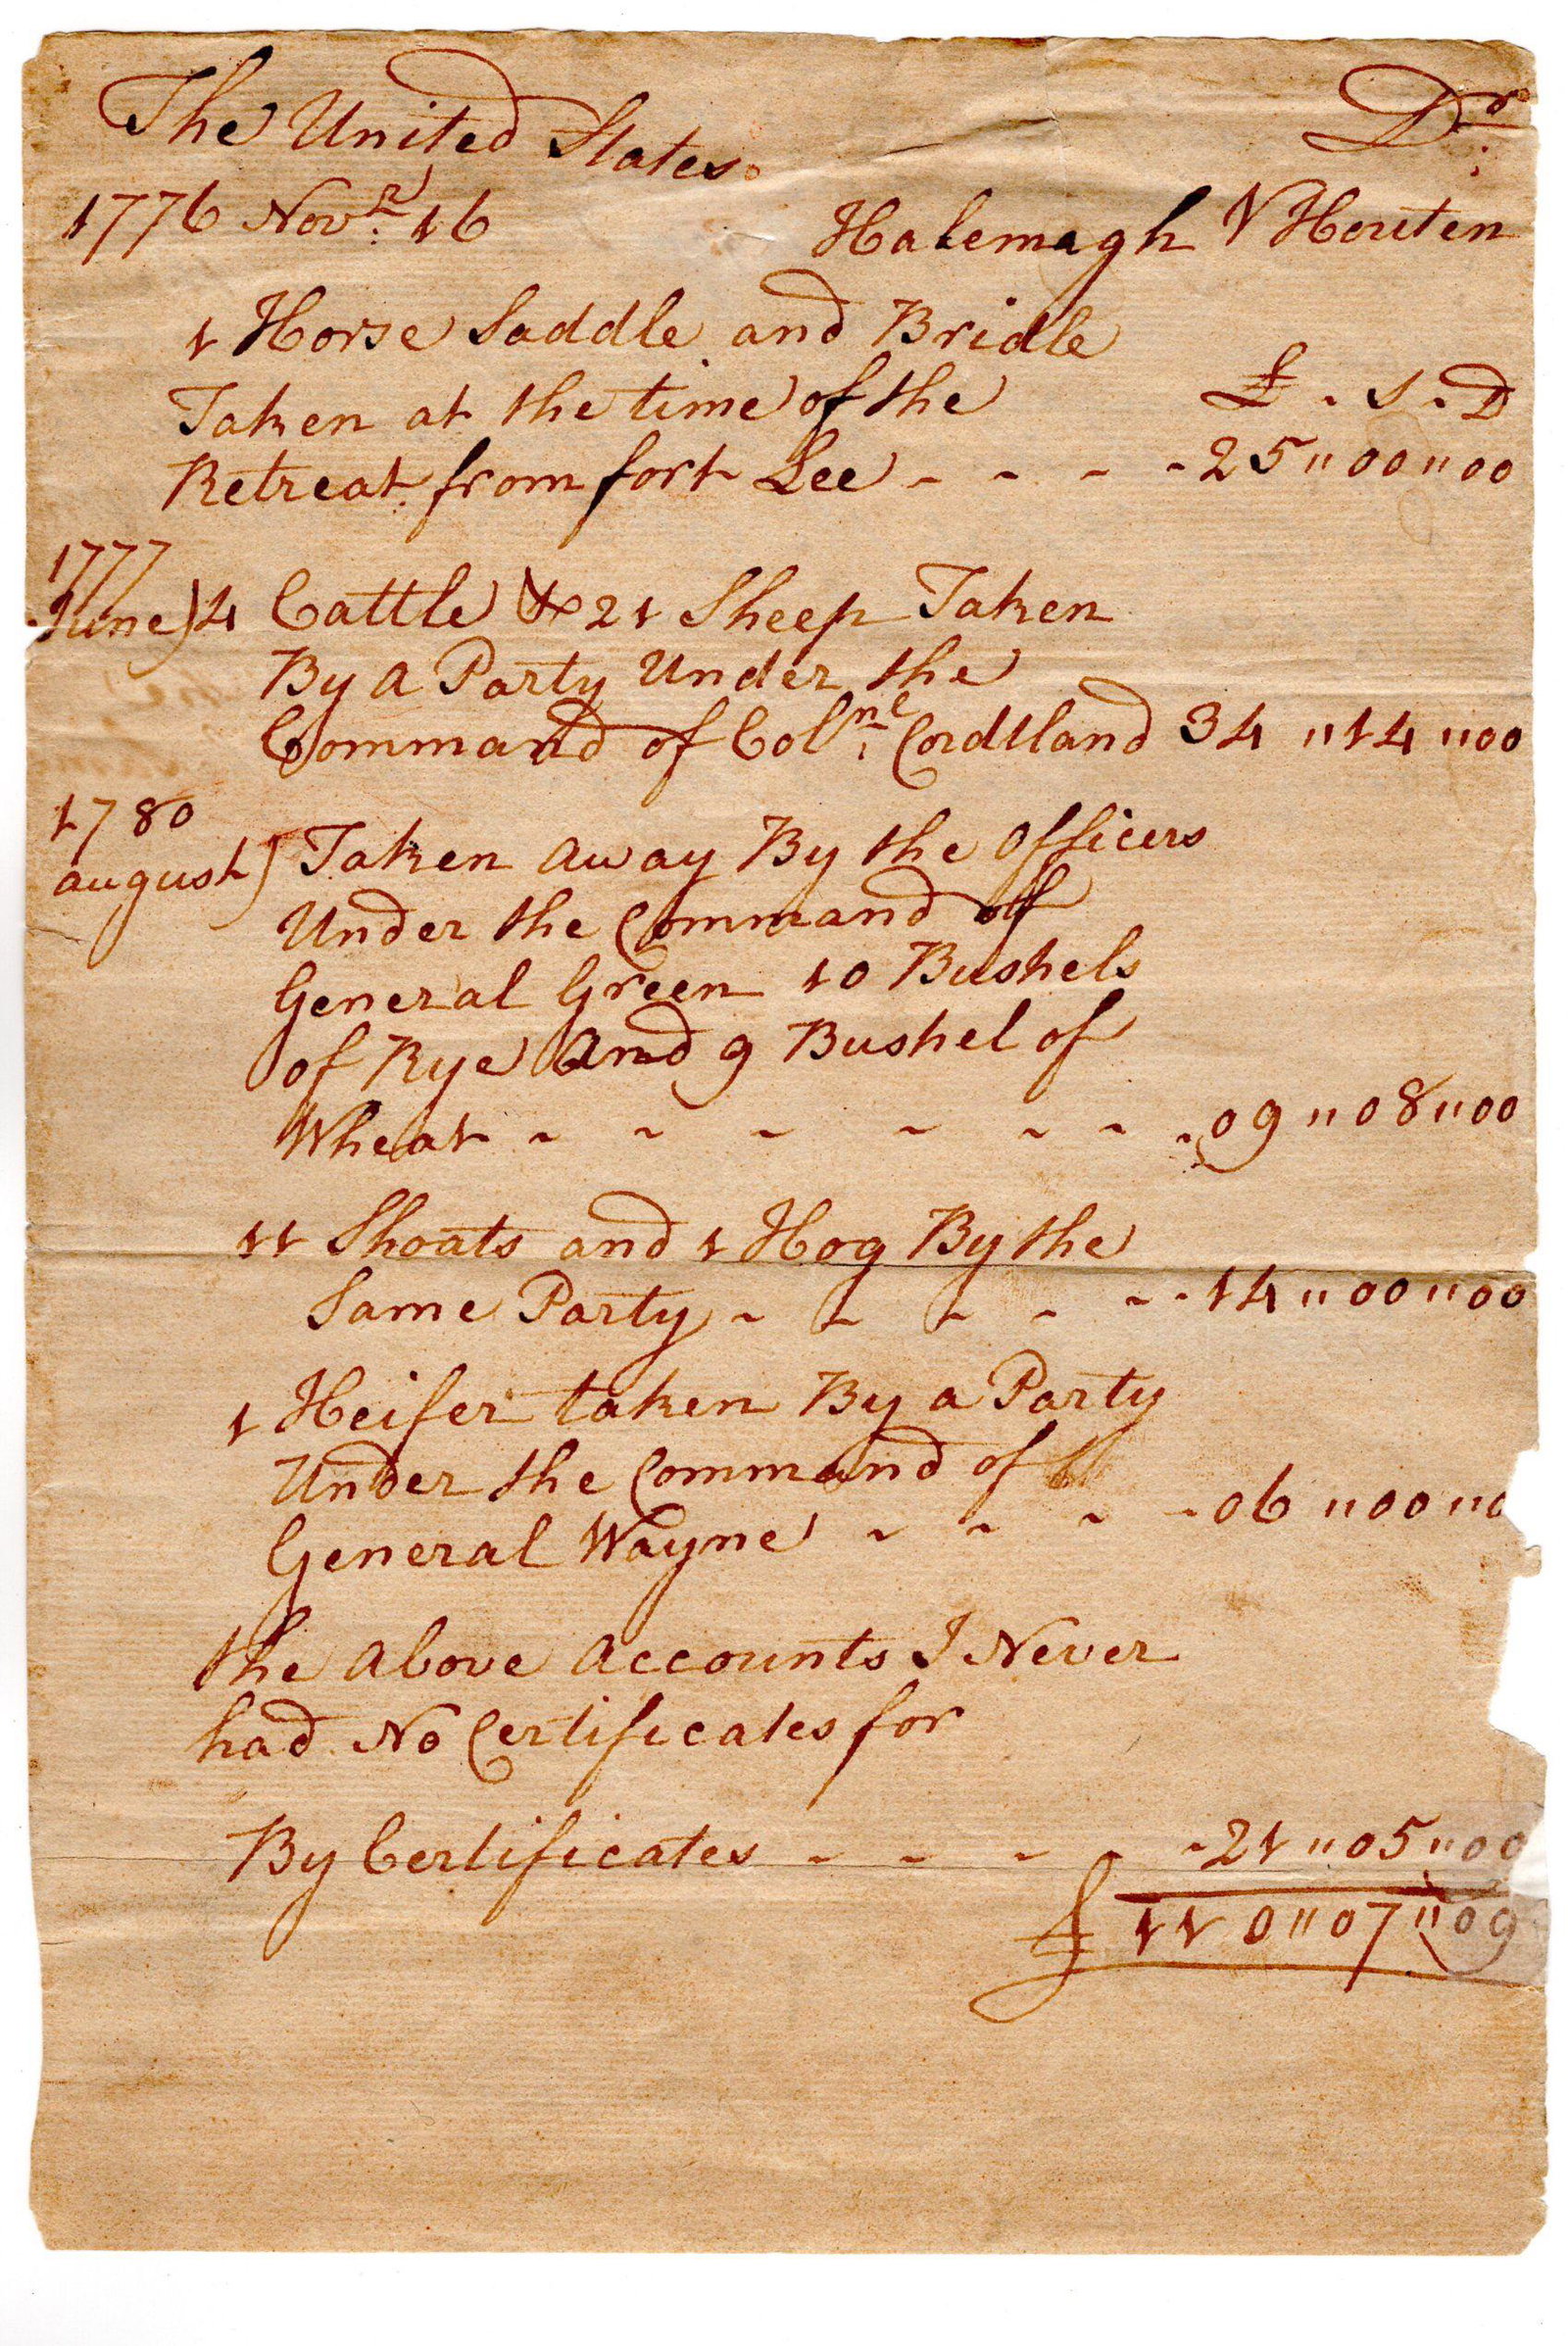 The United States. Dr
1776 Novr. 16 Halemagh V Houten
1 Horse Saddle and Bridle
Taken at the time of the £ - S - D
Retreat from fort Lee - - - - 25 " 00 " 00
1777
June) 4 Cattle & 21 Sheep Taken
By A Party Under the
Command of Colnel Cordtland 34 " 14 " 00
1780
august) Taken Away By the Officers
Under the Command off
General Green 10 Bushels
of Rye And 9 Bushel of
Wheat - - - - - - - 09 " 08 " 00
11 Shoats and 1 Hog By the
Same Party - - - - - - 14 " 00 " 00
1 Heifer taken By a Party
Under the Command of
General Wayne - - - - 06 " 00 " 0
the Above Accounts I Never
had No Certificates for
By Certificates - - - - - 21 " 05 " 00
£ 110 " 07 " 09